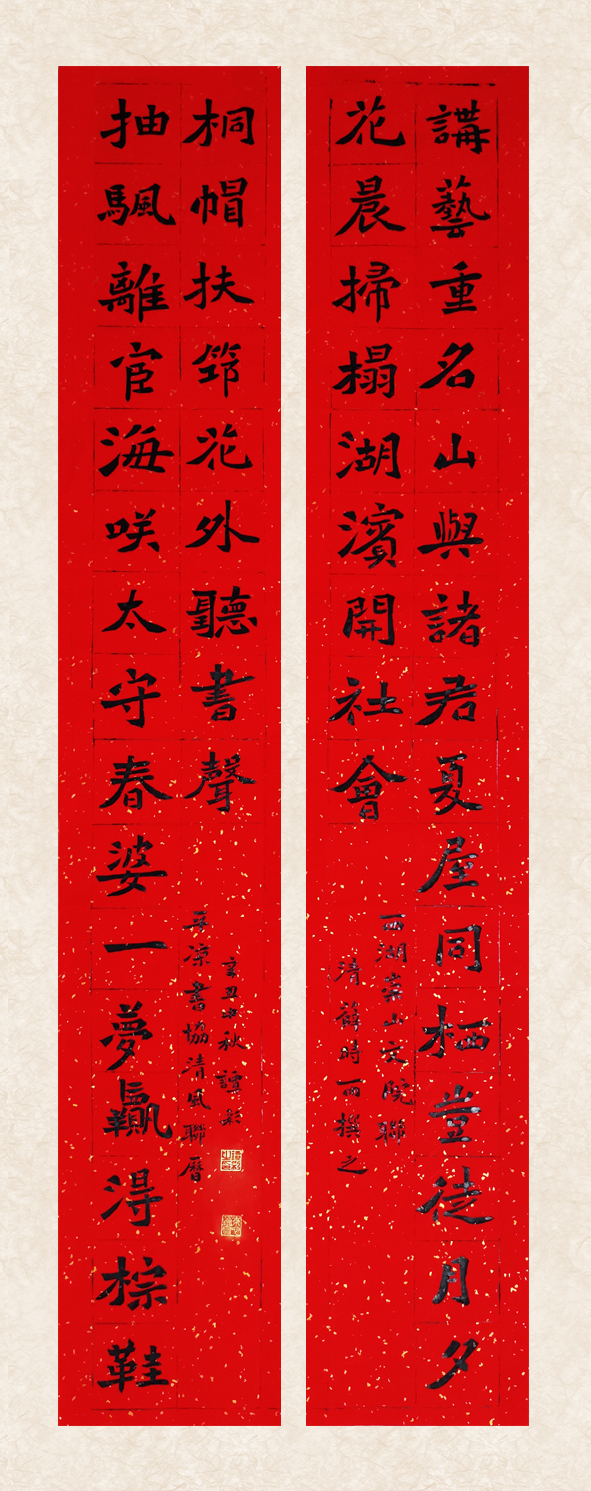 講藝重名山與諸君夏屋同栖豈徒月夕
花晨掃榻湖濱開社會
西湖崇山文院聯
清薛時雨撰之
抽颿離宦海咲太守春婆一夢贏淂棕鞋
桐帽扶筇花外聽書聲
平涼書協清風聯曆
辛丑中秋譚